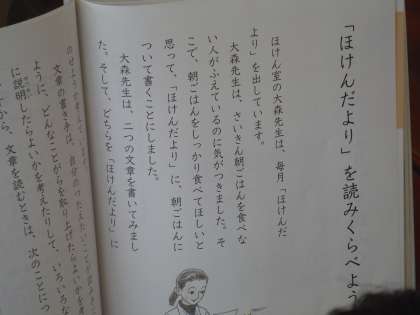 「ほけんだより」を読みくらべよう
ほけん室の大森先生は、毎月「ほけんだ
より」を出しています。
大森先生は、さいきん朝ごはんを食べな
い人がふえているのに気がつきました。そ
こで、朝ごはんをしっかり食べてほしいと
思って、「ほけんだより」に、朝ごはんに
ついて書くことにしました。
大森先生は、二つの文章を書いてみまし
た。そして、どちらを「ほけんだより」に
のせようかを考えて
文章の書き手は、自分のつたえたいことが
ように、どんなことがらを取り上げたらよいか
に説明したらよいかを考えたりして、いろいろな
から、文章を読むときは、次のことに